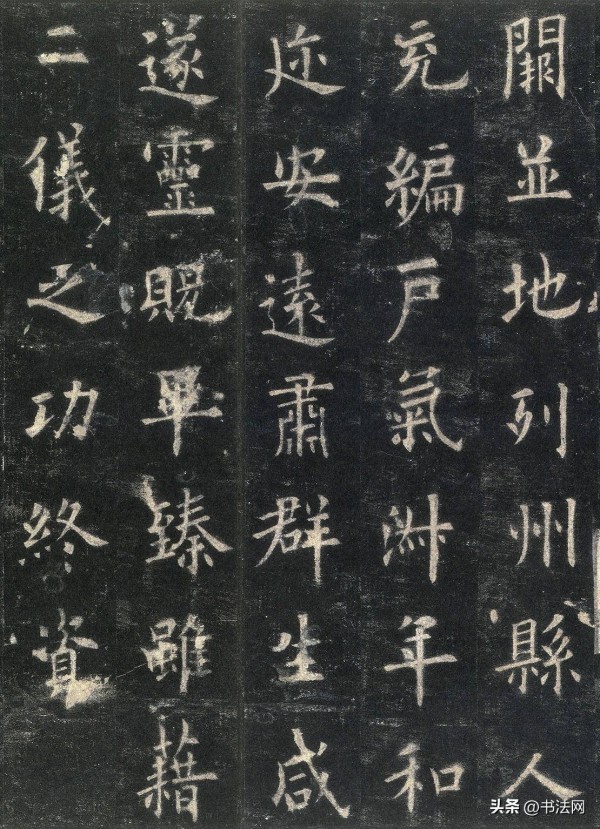 闕並地列州縣人
充編戶氣淑年和
迩安遠肅群生咸
遂靈貺畢臻雖藉
二儀之功終資
头条 @书法网